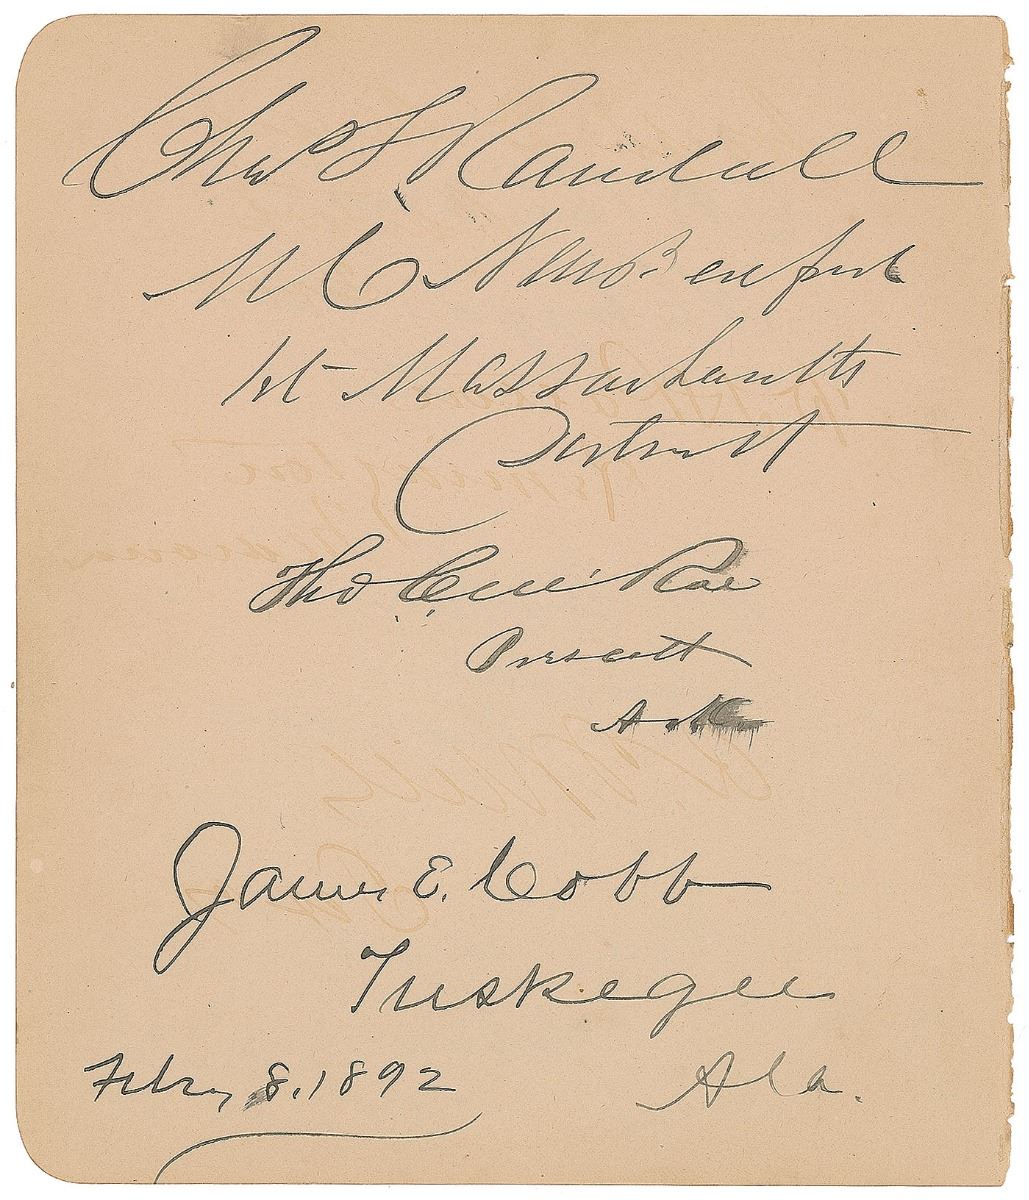 Chas S Randall
M C New Bedford
1st Massachusetts
District
Tho C. McRae
Prescott
Ark
James E. Cobb
Tuskegee
Ala.
Febry 8. 1892